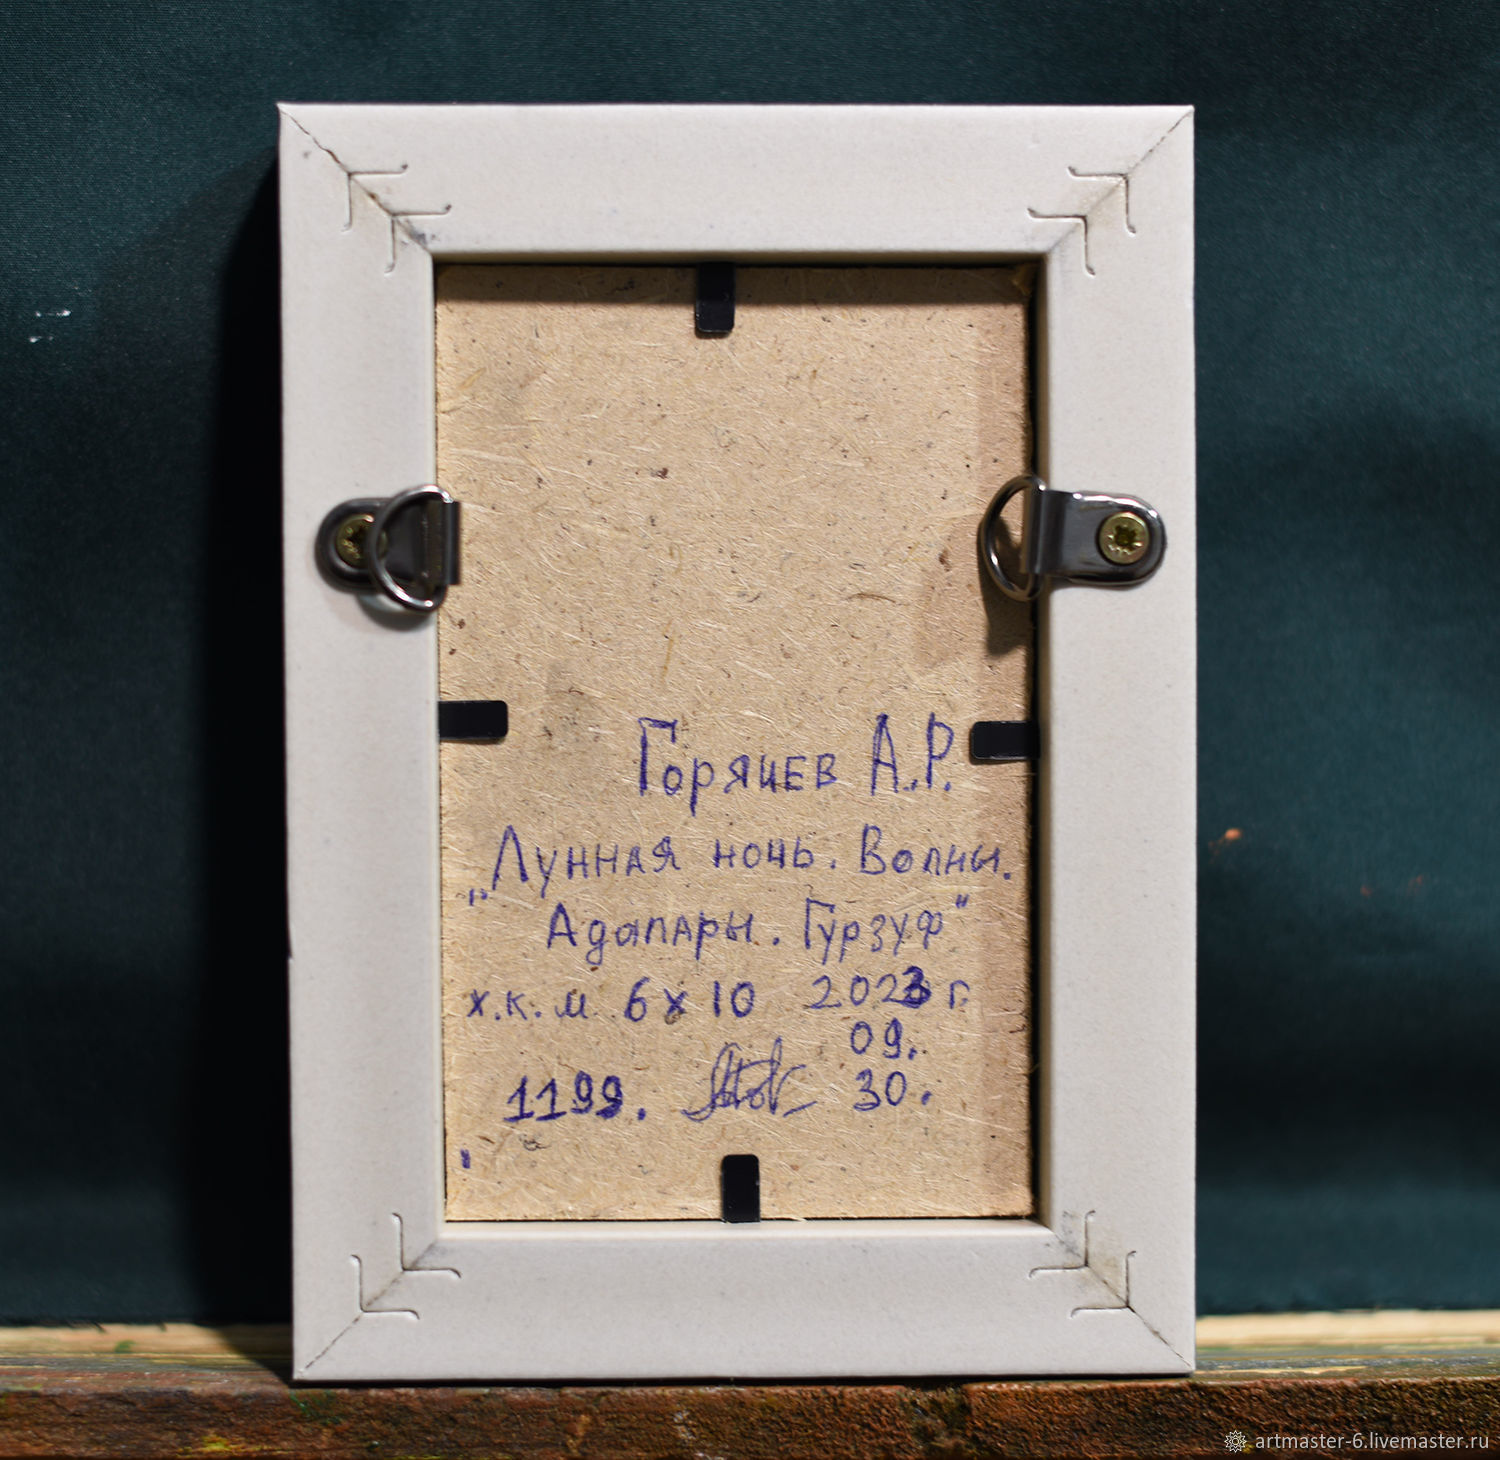 Горячев А.Р.
„Лунная ночь. Волны.
Адалары. Гурзуф"
х.к.м 6х10 2023 г.
09.
1199. 30.
artmaster-6.livemaster.ru